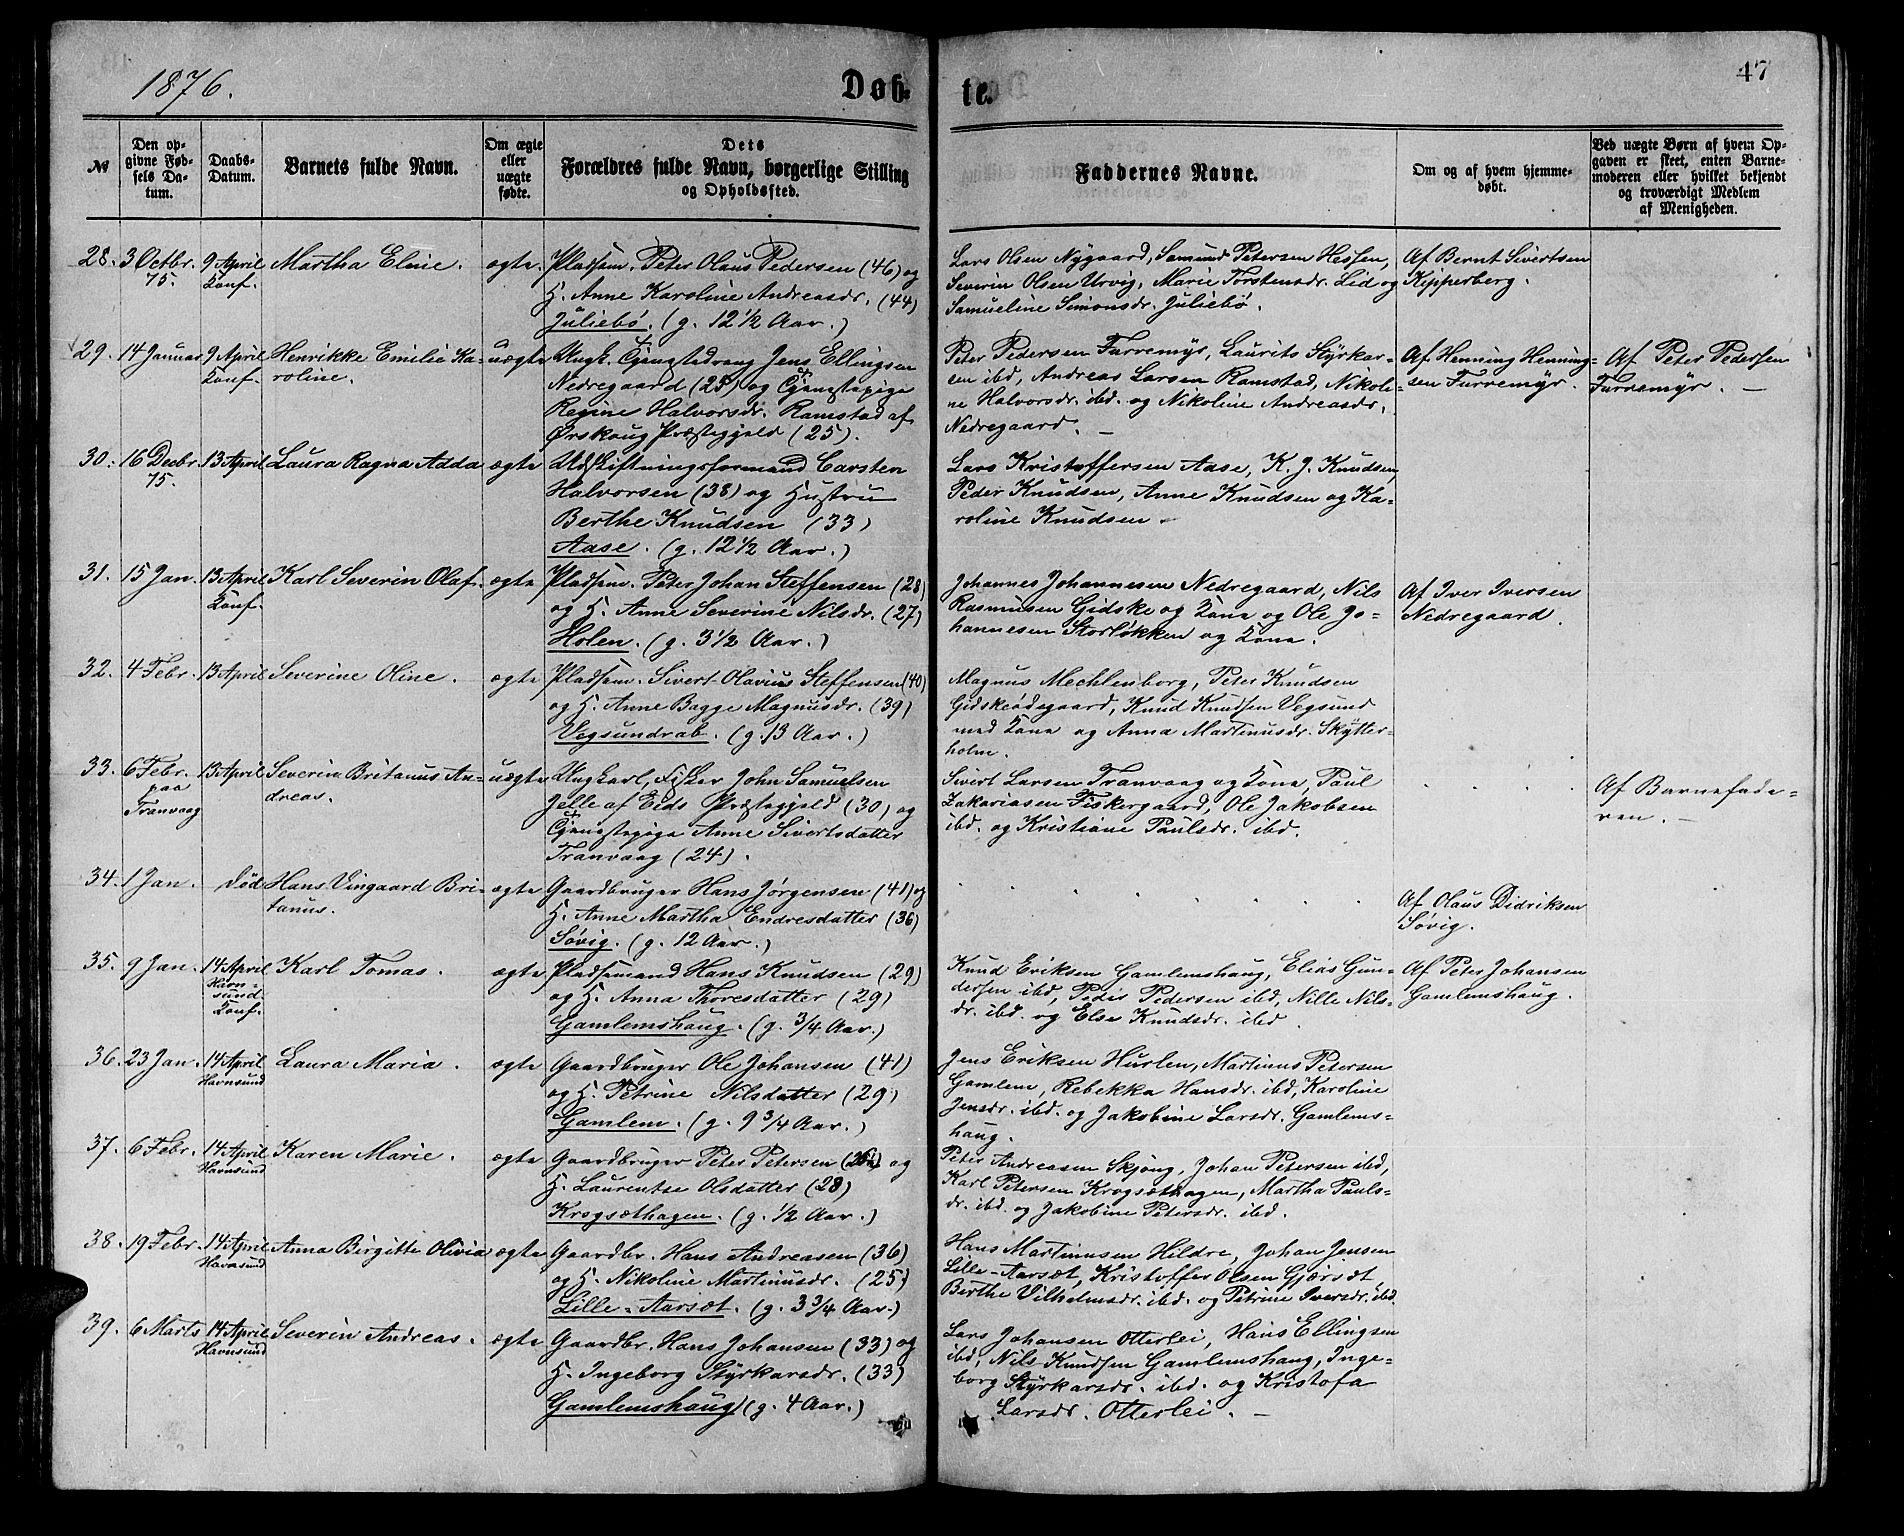 1876.
Døb-
te.
47
№
Den op-
givne Fød-
sels Da-
tum.
Daabs-
Datum.
Barnets fulde Navn.
Om ægte
eller
uægte
fødte.
Dets
Forældres fulde Navn, borgerlige Stilling
og Opholdssted.
Faddernes Navne.
Om og af hvem hjemme-
døbt.
Ved uægte Børn af hvem Op-
gaven er skeet, enten Barne-
moderen eller hvilket bekjendt
og troværdigt Medlem
af Menigheden.
28. 3 Octbr. 75. 9 April Konf. Martha Eline. ægte.
Pladsm. Peter Olaus Pedersen (46) og
H. Anne Karoline Andreasdr. (44)
Juliebö. (g. 12 1/2 Aar.)
Lars Olsen Nygaard, Samund Petersen Hessen,
Severin Olsen Urvig, Marie Torstensdr. Lid og
Samueline Simonsdr. Juliebö.
Af Bernt Sivertsen
Kipperberg.
29. 14 Januar 9 April Konf. Henrikke Emilie Ka-
roline. uægte
Ungk. Tjenestedreng Jens Ellingsen
Nedregaard (25) og Tjenestepige
Regine Halvorsdr. Ramstad af
Ørskoug Præstegjeld (25).
Peter Pedersen Furremyr, Laurits Styrkar-
sen ibd, Andreas Larsen Ramstad, Nikoli-
ne Halvorsdr. ibd. og Nikoline Andreasdr.
Nedregaard. —
Af Henning Henning-
sen Furremyr.
Af Peter Pedersen
Furremyr. —
30. 16 Decbr. 75. 13 April Laura Ragna Adda ægte
Udskiftningsformand Carsten
Halvorsen (38) og Hustru
Berthe Knudsen (33)
Aase. (g. 12 1/2 Aar.)
Lars Kristoffersen Aase, K. J. Knudsen,
Peder Knudsen, Anne Knudsen og Ka-
roline Knudsen.
31. 15 Jan. 13 April Konf. Karl Severin Olaf. ægte
Pladsm. Peter Johan Steffensen (28)
og H. Anne Severine Nilsdr. (27)
Holen. (g. 3 1/2 Aar.)
Johannes Johannesen Nedregaard, Nils
Rasmussen Gidske og Kone og Ole Jo-
hannesen Storløkken og Kone.
Af Iver Iversen
Nedregaard.
32. 4 Febr. 13 April Severine Oline. ægte
Pladsm. Sivert Olavius Steffensen (40)
og H. Anne Bagge Magnusdr. (39)
Vegsundrab. (g. 13 Aar.)
Magnus Mechlenborg, Peter Knudsen
Gidskeødegaard, Knud Knudsen Vegsund
med Kone og Anna Martinusdr. Skytter-
holm.
33. 6 Febr. paa Tranvaag 13 April Severin Britanus An-
dreas. uægte
Ungkarl, Fisker John Samuelsen
Jelle af Eids Præstegjeld (30) og
Tjenestepige Anne Sivertsdatter
Tranvaag (24).
Sivert Larsen Tranvaag og Kone, Paul
Zakariasen Fiskergaard, Ole Jakobsen
ibd. og Kristiane Paulsdr. ibd.
Af Barnefade-
ren. —
34. 1 Jan. død Hans Vingaard Bri-
tanus. ægte
Gaardbruger Hans Jörgensen (41) og
H. Anne Martha Endresdatter (36)
Søvig. (g. 12 Aar.)
Af Olaus Didriksen
Søvig.
35. 9 Jan. 14 April Havn-
sund. Konf. Karl Tomas. ægte
Pladsemand Hans Knudsen (29)
og H. Anna Thoresdatter (29)
Gamlemshaug. (g. 3/4 Aar.)
Knud Eriksen Gamlemshaug, Elias Gun-
dersen ibd, Peder Pedersen ibd, Nille Nils-
dr. ibd. og Else Knudsdr. ibd.
Af Peter Johansen
Gamlemshaug.
36. 23 Jan. 14 April Havnsund Laura Maria. ægte
Gaardbruger Ole Johansen (41)
og H. Petrine Nilsdatter (29)
Gamlem. (g. 9 3/4 Aar.)
Jens Eriksen Hurlen, Martinus Petersen
Gamlem, Rebekka Hansdr. ibd, Karoline
Jensdr. ibd. og Jakobine Larsdr. Gamlems-
haug.
37. 6 Febr. 14 April Havnsund Karen Marie. ægte
Gaardbruger Peter Petersen og
H. Laurentse Olsdatter (28)
Krogsæthagen. (g. 1/2 Aar.)
Peter Andreasen Skjong, Johan Petersen ibd,
Karl Petersen Krogsæthagen, Martha Pauls-
dr. ibd. og Jakobine Petersdr. ibd.
38. 19 Febr. 14 April Havnsund Anna Birgitte Olivia ægte
Gaardbr. Hans Andreasen (36)
og H. Nikoline Martinusdr. (25)
Lille-Aarsæt. (g. 3 3/4 Aar.)
Hans Martinusen Hildre, Johan Jensen
Lille-Aarsæt, Kristoffer Olsen Gjærsæt,
Berthe Vilhelmsdr. ibd. og Petrine Iversdr. ibd.
39. 6 Marts 14 April Havnsund Severin Andreas. ægte
Gaardbr. Hans Johansen (33) og
H. Ingeborg Styrkarsdr. (33)
Gamlemshaug (g. 4 Aar.)
Lars Johansen Otterlei, Hans Ellingsen
ibd, Nils Knudsen Gamlemshaug, Inge-
borg Styrkarsdr. ibd. og Kristofa
Larsdr. Otterlei. —